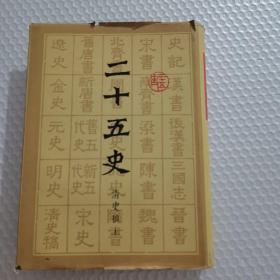 史記
漢書
後漢書
三國志
晉書
宋書
南齊書
梁書
陳書
魏書
北齊
二十五史
清史稿 上
舊唐書
新唐書
舊五代史
新五代史
宋史
遼史
金史
元史
明史
清史稿